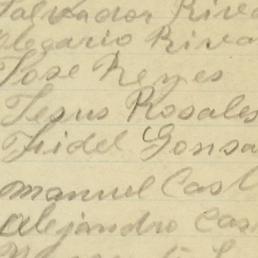 Salvador Riva
Olegario Riva
Jose Reyes
Jesus Rosales
Fidel Gonsa
manuel Cast
Alejandro Cas